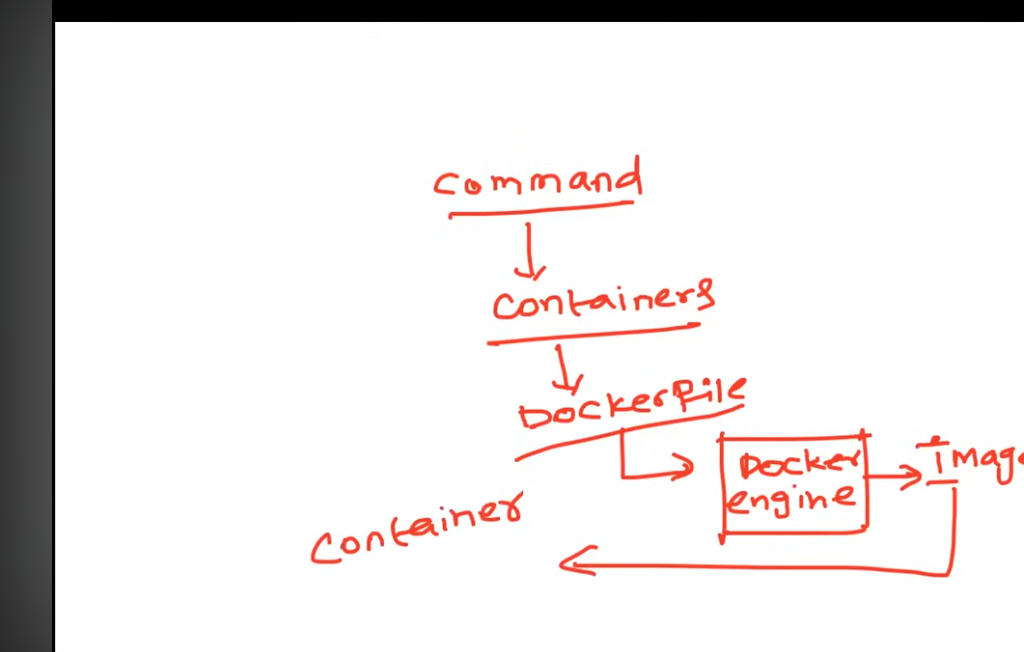 command
containers
Dockerfile
Docker
engine
image
container